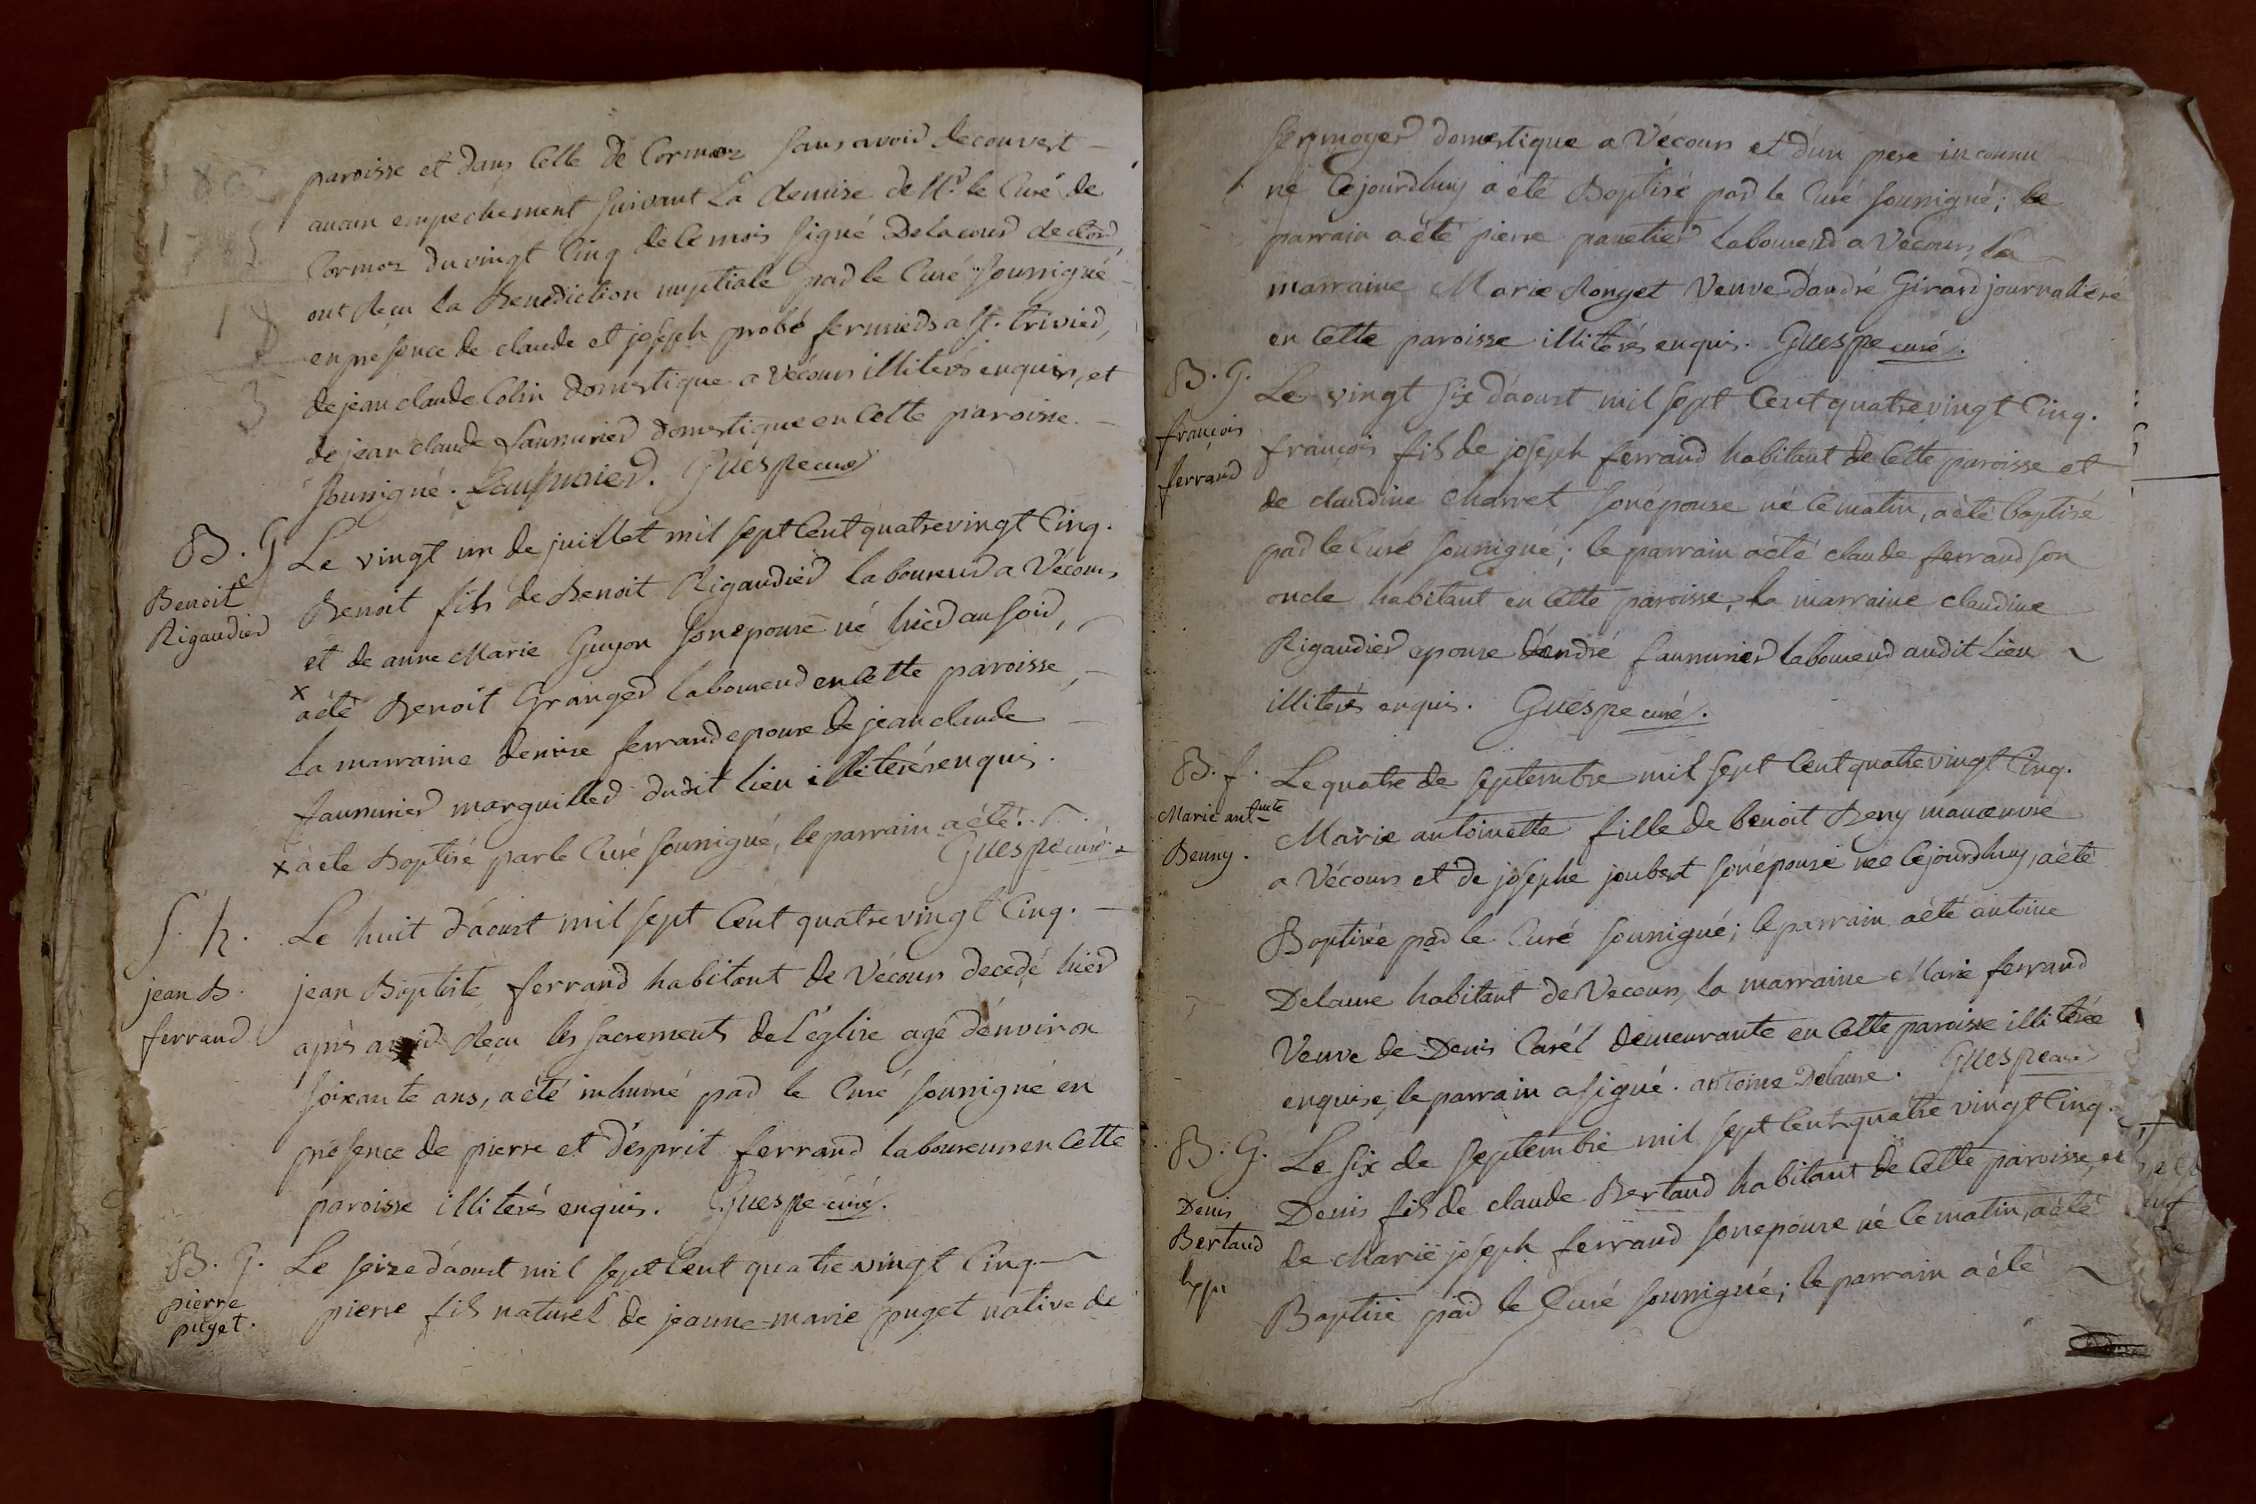 paroisse et dans Celle de Cormoz sans avoir decouvert
aucun empechement suivant La demise de Mr. le Curé de
Cormoz du vingt Cinq de Ce mois signé Delacour declord
ont Reçu la Benediction nuptiale par le Curé soussigné
en presence de claude et joseph probé fermiers a St. trivier,
de jean claude Colin domestique a Vécours illiterés enquis, et
de jean claude faussurier domestique en Cette paroisse
soussigné. Guespe curé
B. G.
Benoit
Rigaudier
Le vingt un de juillet mil sept Cent quatre vingt Cinq.
Benoit fils de Benoit Rigaudier laboureur a Vécours
et de anne Marie Guyon son epouse né hier au soir,
x a été Benoit Granger laboureur en Cette paroisse,
la marraine denise ferrand epouse de jean claude
marguiller dudit lieu illiterés enquis.
x a ete Baptisé par le Curé soussigné, le parrain a été.
Guespe curé
S. h.
jean B.
ferrand
Le huit d'aoust mil sept Cent quatre vingt Cinq.
jean Baptiste ferrand habitant de Vécours decedé hier
après avoir Reçu les sacrements de l'église agé d'environ
soixante ans, a été inhumé par le Curé soussigné en
présence de pierre et d'esprit ferrand laboureurs en Cette
paroisse illiterés enquis. Guespe curé.
B. G.
pierre
puget.
Le seize d'aoust mil sept Cent quatre vingt Cinq
pierre fils naturel de jeanne-marie puget native de
Sermoyer domestique a Vécours et d'un pere inconnu
né Cejourdhuy a été Baptisé par le Curé soussigné; le
parrain a été pierre panetier laboureur a Vécours, la
marraine Marie Ronget Veuve d'andré Girard journalière
en Cette paroisse illiterés enquis. Guespe curé.
B. G.
françois
ferrand
Le vingt six d'aoust mil sept Cent quatre vingt Cinq.
françois fils de joseph ferrand habitant de Cette paroisse et
de claudine Charvet son épouse né Ce matin, a été baptisé
par le Curé soussigné; le parrain a été claude ferrand son
oncle habitant en Cette paroisse, la marraine claudine
Rigaudier epouse d'andré laboureur audit Lieu
illiterés enquis. Guespe curé.
B. f.
Marie ant.nte
Benny.
Le quatre de septembre mil sept Cent quatre vingt Cinq.
Marie antoinette fille de benoit Beny manoeuvre
a Vécours et de josephe joubert son épouse née Cejourdhuy, a été
Baptisée par le Curé soussigné; le parrain a été antoine
Delaure habitant de Vecours, la marraine Marie ferrand
Veuve de Denis Carél demeurante en Cette paroisse illiterée
enquise, le parrain a signé. antoine Delaure. Guespe curé
B. G.
Denis
Bertaud
Le six de septembre mil sept Cent quatre vingt Cinq.
Denis fils de claude Bertaud habitant de Cette paroisse, et
de Marie joseph ferrand son epouse né Ce matin, a été
Baptisé par le Curé soussigné; le parrain a été